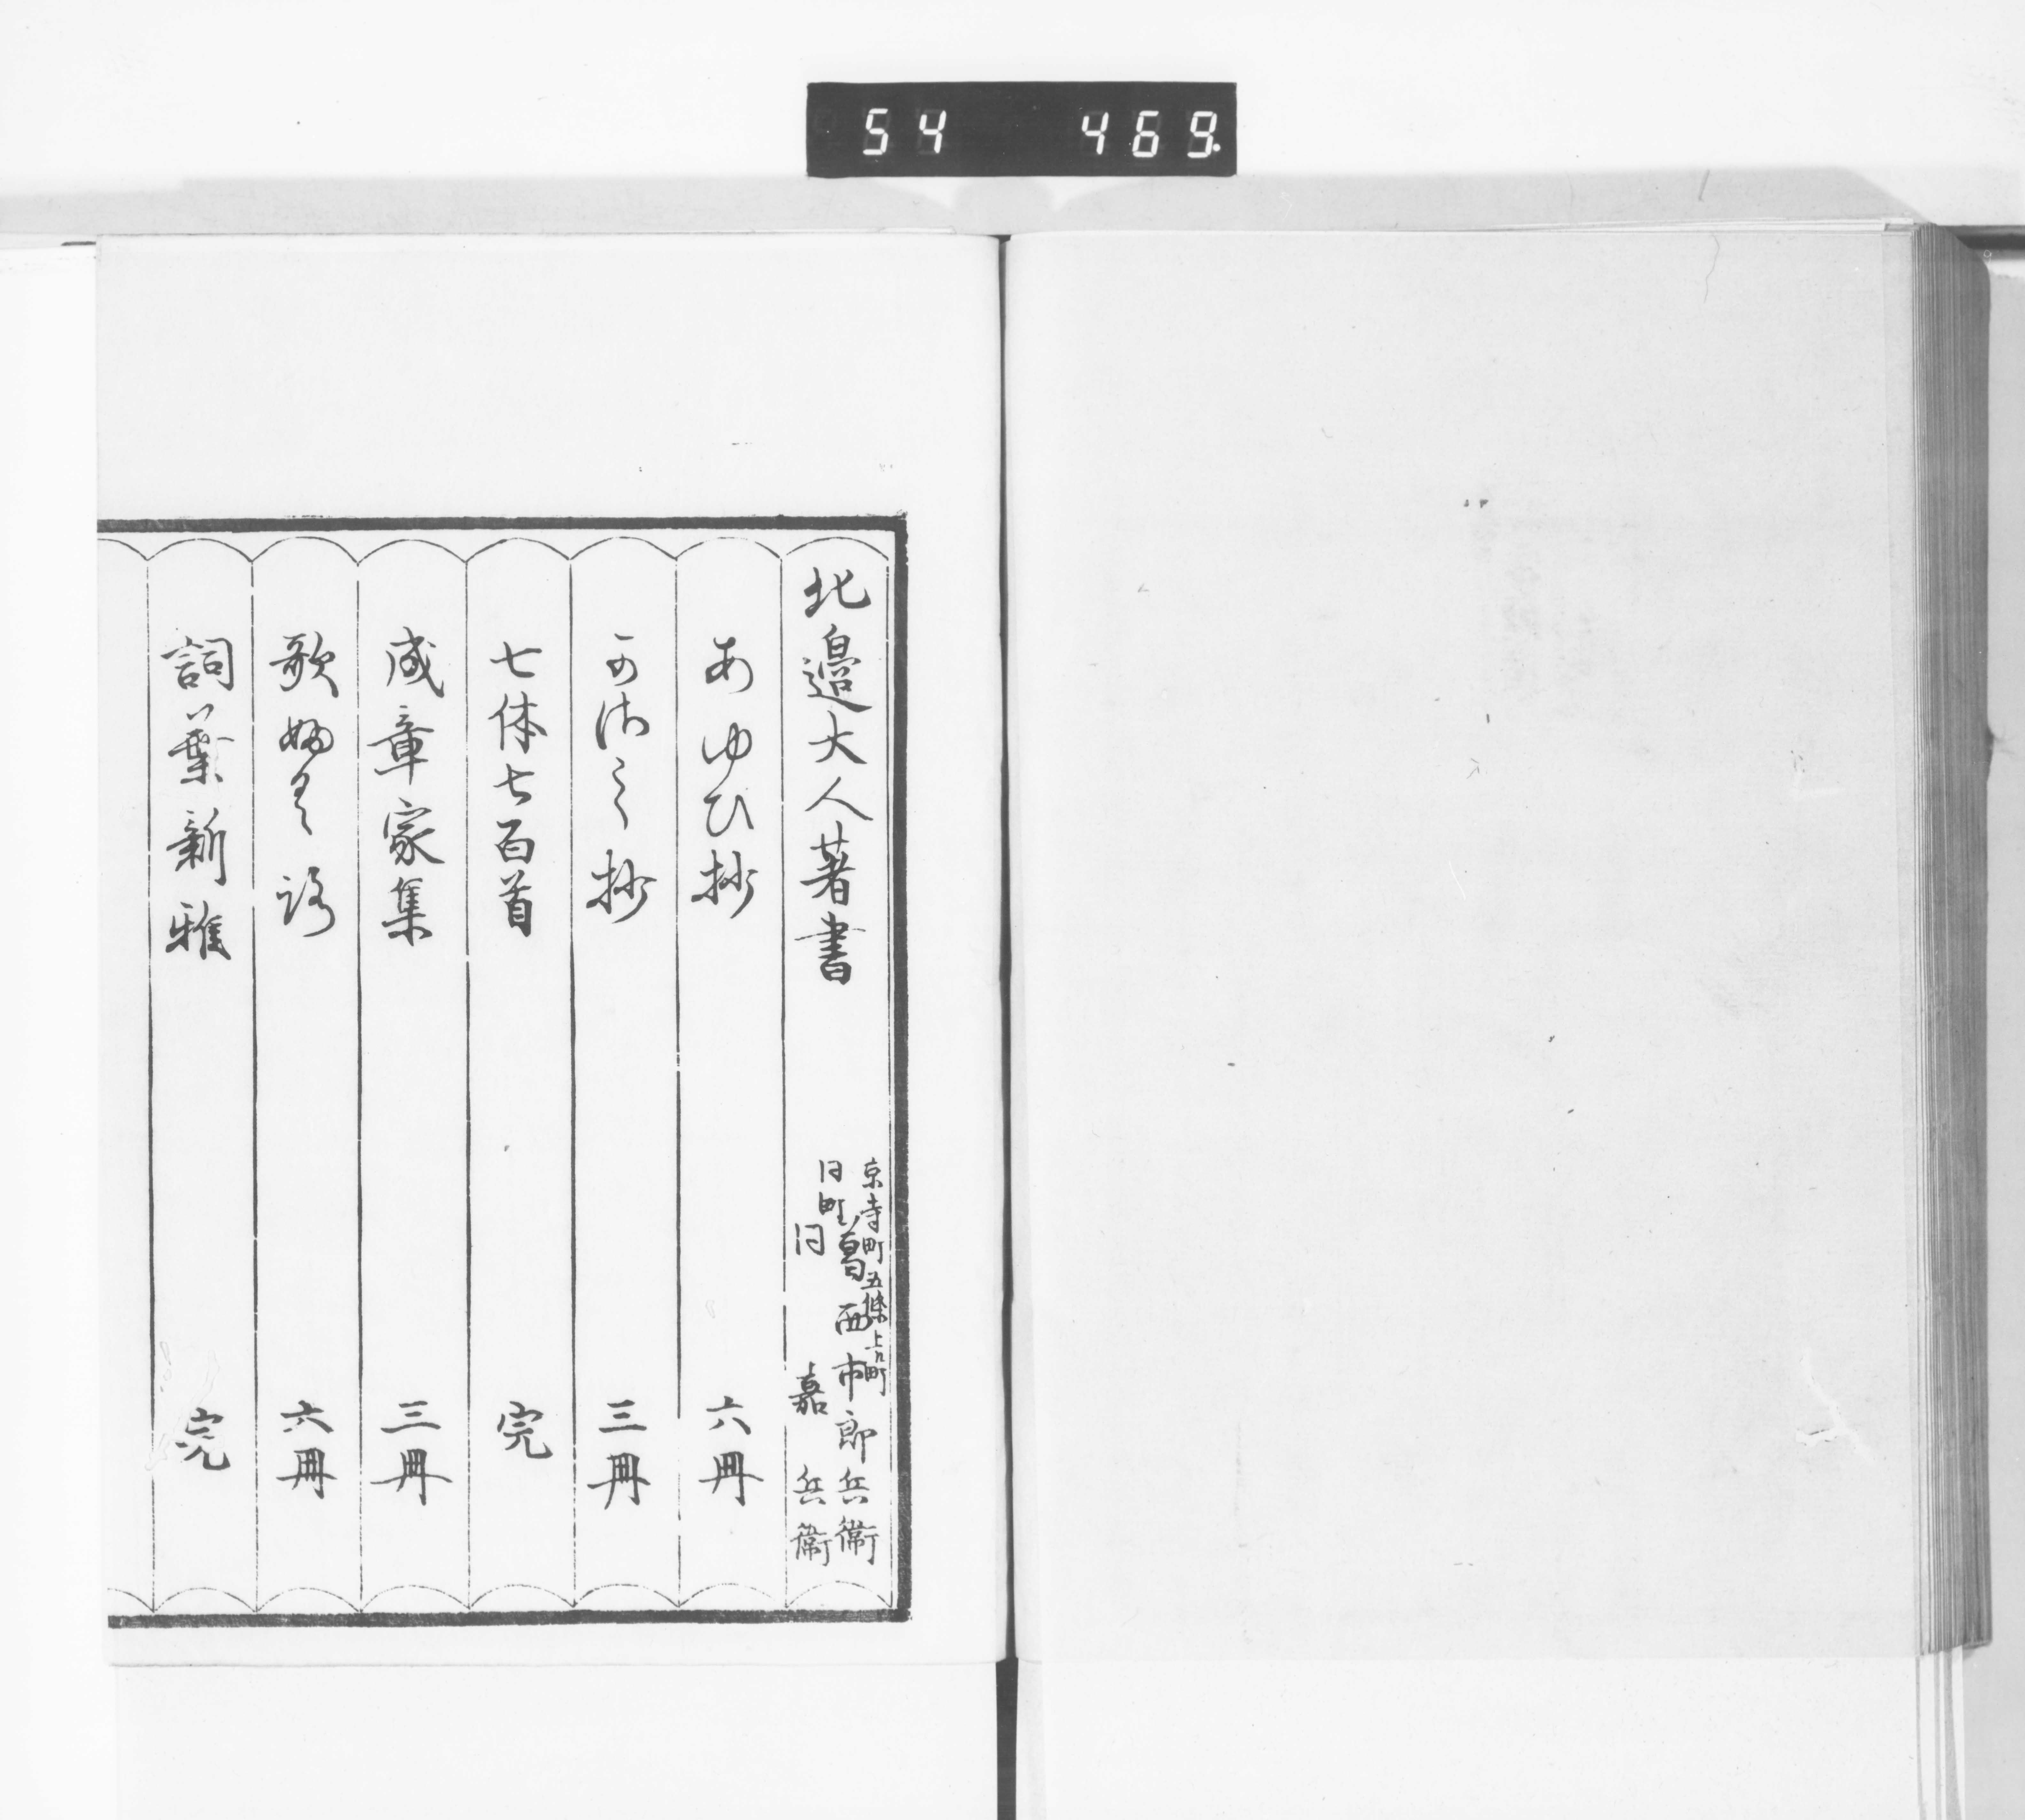 54 469.
北邊大人著書
京寺町五條上ル町
葛西市郎兵衞
同町
同 嘉兵衞
あゆひ抄 六冊
かさし抄 三冊
七体七百首 完
成章家集 三冊
歌 六冊
詞葉新雅 完